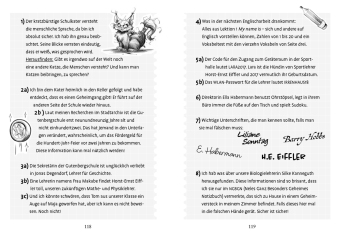 1) Der kreszbärtige Schulkater versteht
die menschliche Sprache, da bin ich
absolut sicher. Ich hab ihn genau beob-
achtet. Seine Blicke verraten eindeutig,
dass er weiß, was gesprochen wird.
Herausfinden: Gibt es irgendwo auf der Welt noch
eine andere Katze, die Menschen versteht? Und kann man
Katzen beibringen, zu sprechen?
2a) Ich bin dem Kater heimlich in den Keller gefolgt und habe
entdeckt, dass es einen Geheimgang gibt! Er führt auf der
anderen Seite der Schule wieder hinaus.
2b) Laut meinen Recherchen im Stadtarchiv ist die Gu-
tenbergschule erst neunundneunzig Jahre alt und
nicht einhundertzwei. Das hat jemand in den Unterla-
gen verändert, wahrscheinlich, um das Fördergeld für
die Hundert-Jahr-Feier vor zwei Jahren zu bekommen.
Diese Information kann mal nützlich werden!
3a) Die Sekretärin der Gutenbergschule ist unglücklich verliebt
in Jonas Degendorf, Lehrer für Geschichte.
3b) Eine Lehrerin namens Frau Makebe findet Horst-Ernst Eiff-
ler toll, unseren zukünftigen Mathe- und Physiklehrer.
3c) Und ich könnte schwören, dass Tom aus unserer Klasse ein
Auge auf Maja geworfen hat, aber ich kann es nicht bewei-
sen. Noch nicht!
118
4) Was in der nächsten Englischarbeit drankommt:
Alles aus Lektion I (My name is – sich und andere auf
Englisch vorstellen können, Zahlen von 1 bis 20 und ein
Vokabeltest mit den vierzehn Vokabeln von Seite drei.
5a) Der Code für den Zugang zum Geräteraum in der Sport-
halle lautet LARA2017. Lara ist die Hündin von Sportlehrer
Horst-Ernst Eiffler und 2017 vermutlich ihr Geburtsdatum.
5b) Das WLAN-Passwort für die Lehrer lautet IHRBANAUSEN.
6) Direktorin Ella Habermann benutzt Ohrstöpsel, legt in ihrem
Büro immer die Füße auf den Tisch und spielt Sudoku.
7) Wichtige Unterschriften, die man kennen sollte, falls man
sie mal fälschen muss:
Liliane
Sonntag
Barry Hobbs
E. Habermann
H.E. EIFFLER
8) Ich hab was über unsere Biologielehrerin Silke Kannegurth
herausgefunden. Diese Informationen sind so brisant, dass
ich sie nur im NGNGN (Neles Ganz Besonders Geheimes
Notizbuch) vermerke, das sich zu Hause in einem Geheim-
versteck in meinem Zimmer befindet. Falls dieses hier mal
in die falschen Hände gerät. Sicher ist sicher!
119